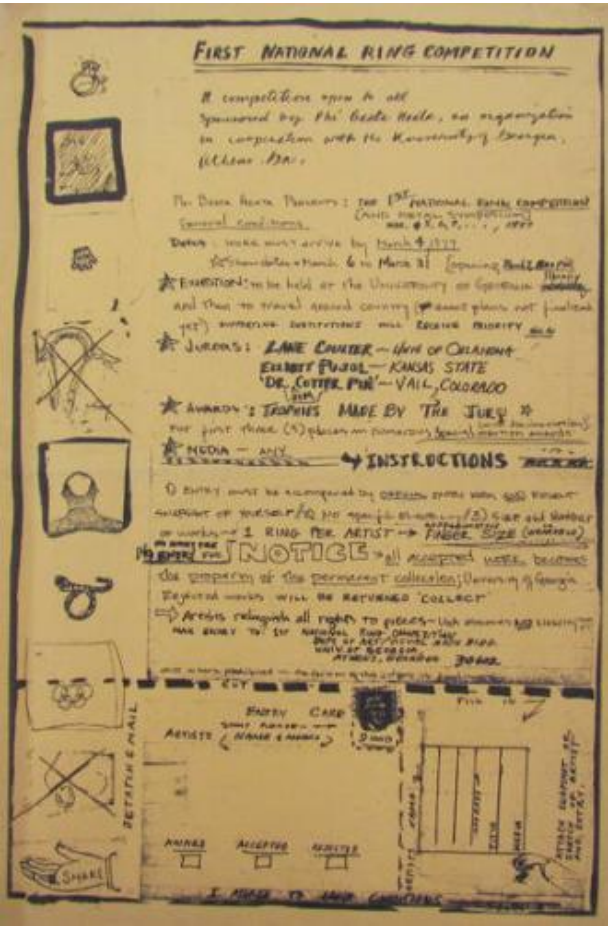 FIRST NATIONAL RING COMPETITION
A competition open to all
Sponsored by Phi Beta Heata, an organization
in cooperation with the University of Georgia,
Athens, Ga.
PRESENTS: THE 1ST NATIONAL RING COMPETITION
(AND METAL SYMPOSIUM)
General conditions
DATES: WORK MUST ARRIVE BY March 4 1977
Show dates March 6 to March 31 (opening
EXHIBITION: to be held at the UNIVERSITY OF GEORGIA
and then to travel around country (exact plans not finalized
yet) SUPPORTING INSTITUTIONS WILL RECEIVE PRIORITY
JURORS: LANE COULTER — UNIV OF OKLAHOMA
ELLIOTT PUJOL — KANSAS STATE
'DR. COTTER PIN' — VAIL, COLORADO
AWARDS: TROPHIES MADE BY THE JURY
For first three (3) places and numerous special mention awards
MEDIA — ANY
INSTRUCTIONS
1) ENTRY must be accompanied by OFFICIAL ENTRY FORM AND RECENT
SNAPSHOT OF YOURSELF / 2) No specific / 3) Size and Number
of works — 1 RING PER ARTIST FINGER SIZE (WEARABLE)
NO ENTRY FEE NOTICE all ACCEPTED WORK becomes
the property of the permanent collection; University of Georgia
Rejected works WILL BE RETURNED 'COLLECT'
Artists relinquish all rights to pieces
MAIL ENTRY TO: 1ST NATIONAL RING COMPETITION
DEPT OF ART VISUAL ARTS BLDG.
UNIV. OF GEORGIA
ATHENS, GEORGIA 30602
CUT
FILL IN
ENTRY CARD
ARTISTS (NAME & ADDRESS)
DETATCH & MAIL
ARTISTS NAME
ADDRESS
TITLE
MEDIA
ATTACH SNAPSHOT OR
SKETCH OF ARTIST
AND ENTRY.
AWARD
ACCEPTED
REJECTED
SHARE
I AGREE TO SAID CONDITIONS